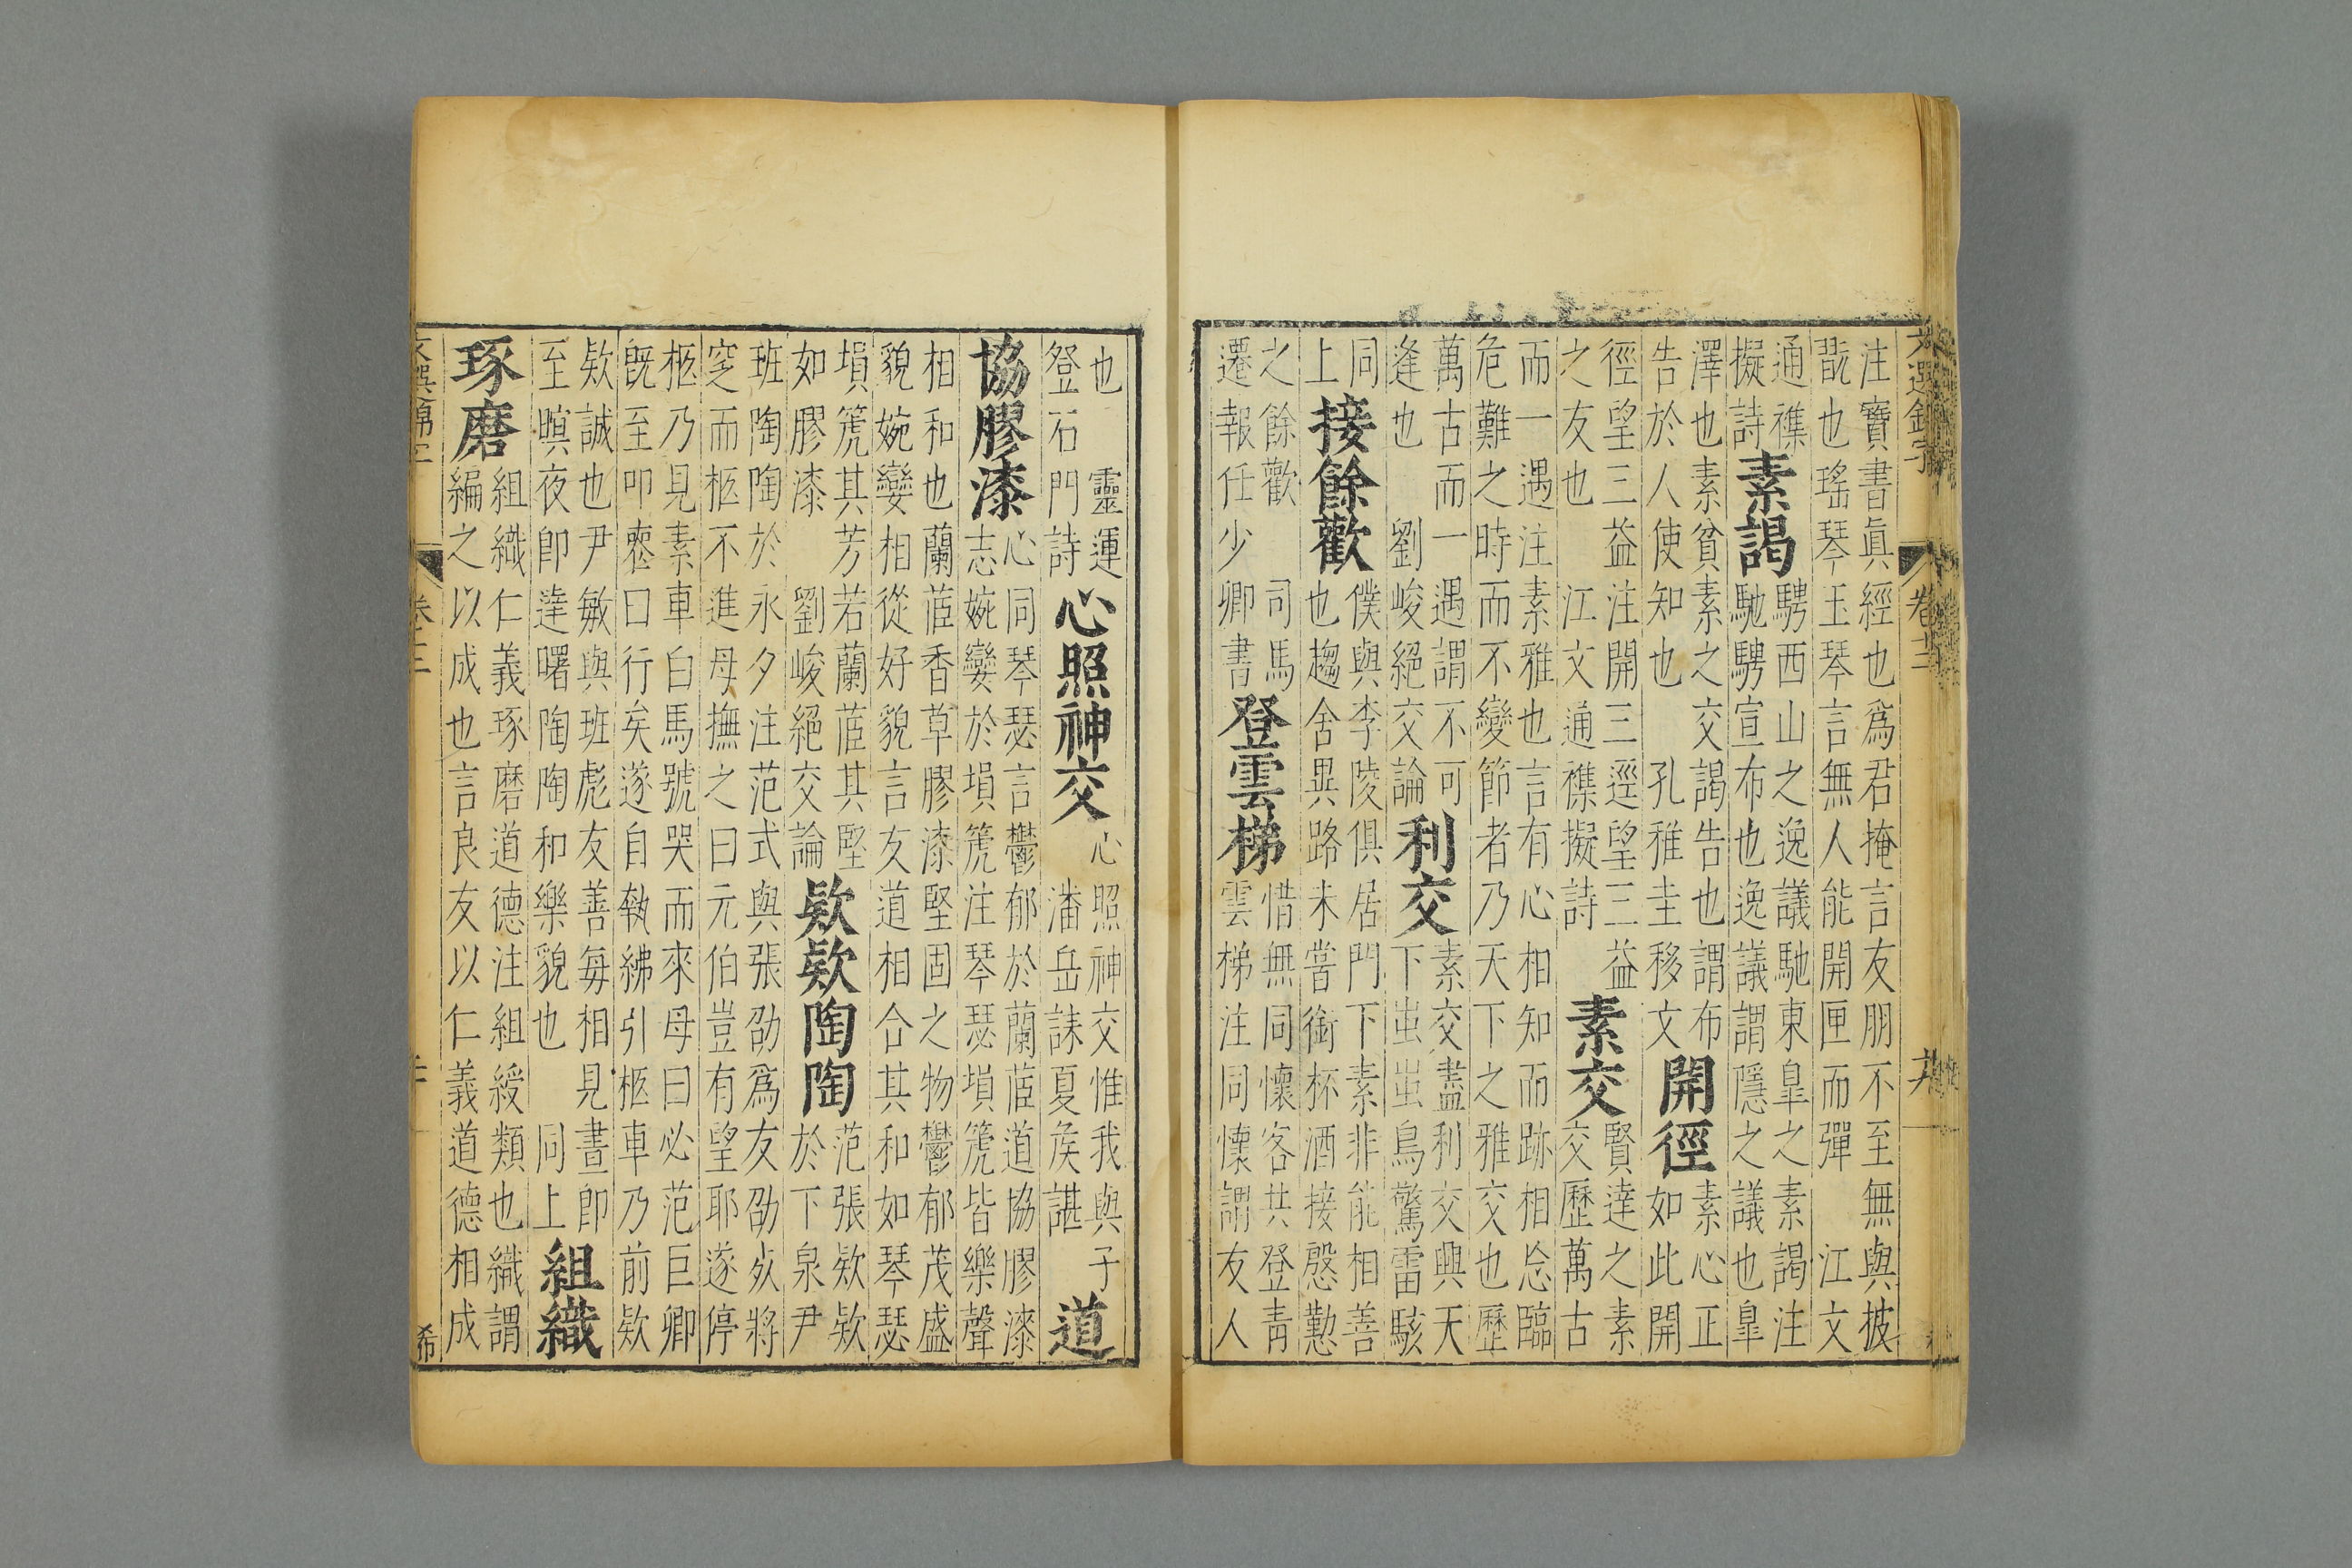 文選錦字 卷十二
注寶書眞經也爲君掩言友朋不至無與披
翫也瑤琴玉琴言無人能開匣而彈 江文
通襍
擬詩
素謁
騁西山之逸議馳東皐之素謁注
馳騁宣布也逸議謂隱之議也皐
澤也素貧素之交謁告也謂布
告於人使知也 孔稚圭移文
開徑
素心正
如此開
徑望三益注開三逕望三益
之友也 江文通襍擬詩
素交
賢達之素
交歷萬古
而一遇注素雅也言有心相知而跡相忘臨
危難之時而不變節者乃天下之雅交也歷
萬古而一遇謂不可
逢也 劉峻絕交論
利交
素交盡利交興天
下蚩蚩鳥驚雷駭
同
上
接餘歡
僕與李陵俱居門下素非能相善
也趨舍異路未嘗銜杯酒接慇懃
之餘歡 司馬
遷報任少卿書
登雲梯
惜無同懷客共登青
雲梯注同懷謂友人
也 靈運
登石門詩
心照神交
心照神交惟我與子
潘岳誄夏侯諶
道
協膠漆
心同琴瑟言鬱郁於蘭茝道協膠漆
志婉孌於塤篪注琴瑟塤篪皆樂聲
相和也蘭茝香草膠漆堅固之物鬱郁茂盛
貌婉孌相從好貌言友道相合其和如琴瑟
塤篪其芳若蘭茝其堅
如膠漆 劉峻絕交論
欵欵陶陶
范張欵欵
於下泉尹
班陶陶於永夕注范式與張劭爲友劭死將
窆而柩不進母撫之曰元伯豈有望耶遂停
柩乃見素車白馬號哭而來母曰必范巨卿
旣至叩喪曰行矣遂自執紼引柩車乃前欵
欵誠也尹敏與班彪友善每相見晝卽
至暝夜卽達曙陶陶和樂貌也 同上
組織
琢磨
組織仁義琢磨道德注組綬類也織謂
編之以成也言良友以仁義道德相成
希